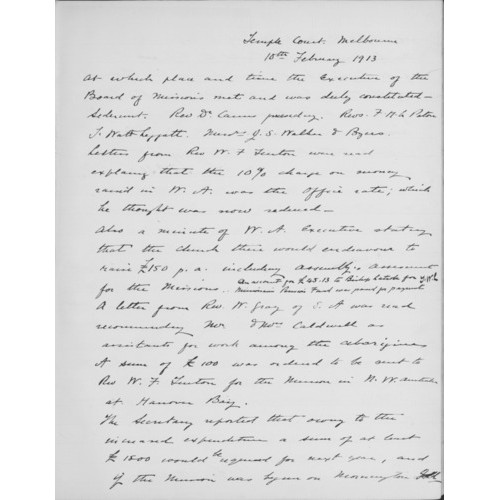 Temple Court. Melbourne
10th February 1913
at which place and time the Executive of the
Board of Missions met and was duly constituted —
Sederunt. Rev Dr Cairns presiding. Revs. F H L Paton
T. Watt Leggatt. Messrs J. S. Walker & Byers.
Letters from Rev W. F. Fenton were read
explaing that the 10% charge on money
raised in W. A. was the Office rate, which
he thought was now reduced —
Also a minute of W. A. Executive stating
that the church there would endeavour to
raise £150 p. a. including assembly's amount
for the Missions. An account for £45.13 to
Missionaries Pension Fund was passed for payment
A letter from Rev. W. Gray of S. A was read
recommending Mr & Mrs Caldwell as
assistants for work among the aborigines
A sum of £100 was ordered to be sent to
Rev W. F. Fenton for the Mission in N. W. Australia
at Hanover Bay.
The Secretary reported that owing to the
increased expenditure a sum of at least
£1800 would be required for next year, and
if the Mission was begun on Mornington